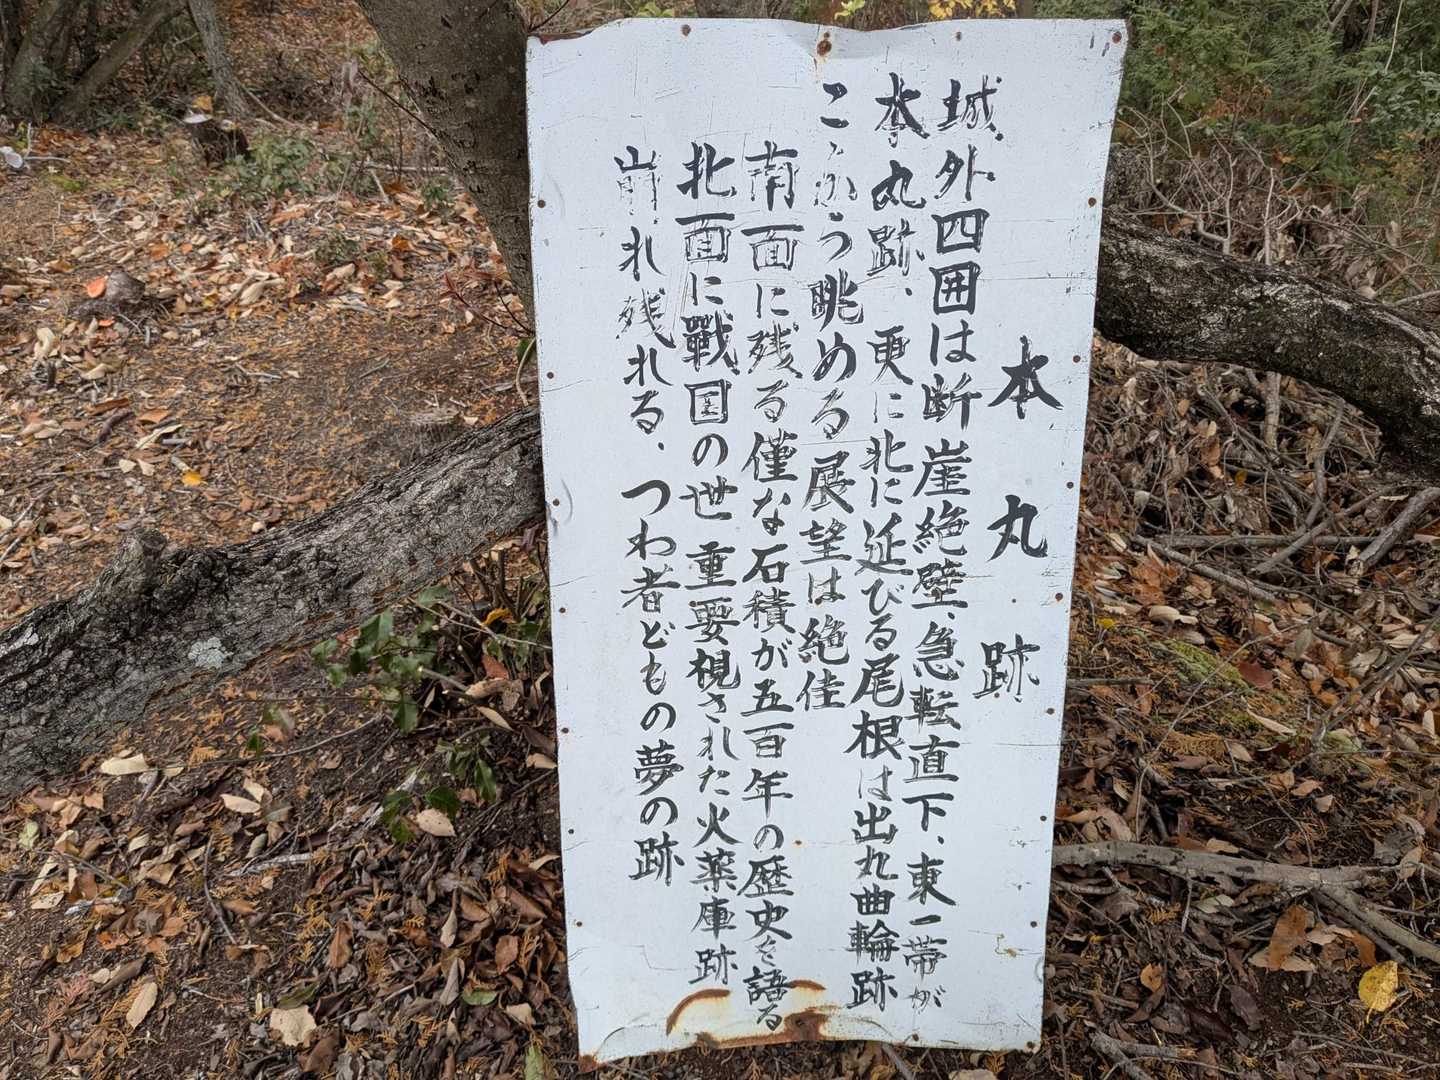 本丸跡
城外四囲は断崖絶壁、急転直下、東一帯が
本丸跡、更に北に延びる尾根は出丸曲輪跡
こゝから眺める展望は絶佳
南面に残る僅な石積が五百年の歴史を語る
北面に戰国の世重要視された火薬庫跡
崩れ残れる、つわ者どもの夢の跡